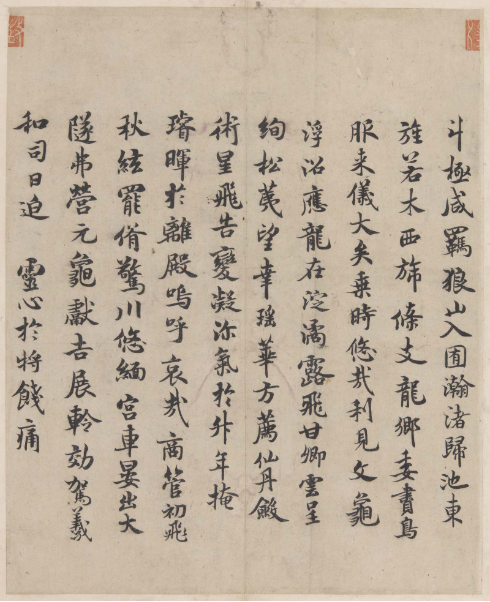 斗極咸羈狼山入囿瀚渚歸池東
旌若木西旆條支龍鄉委書鳥
服来儀大矣乗時悠哉利見文龜
浮沼應龍在淀濡露飛甘卿雲呈
絢松荑望幸瑶華方薦仙丹斂
術星飛告變凝沵氣於升年掩
璿暉於離殿嗚呼哀哉商管初飛
秋絃罷脩驚川悠緬宮車晏出大
隧弗營元龜獻吉展軨効駕羲
和司日追 靈心於將餞痛